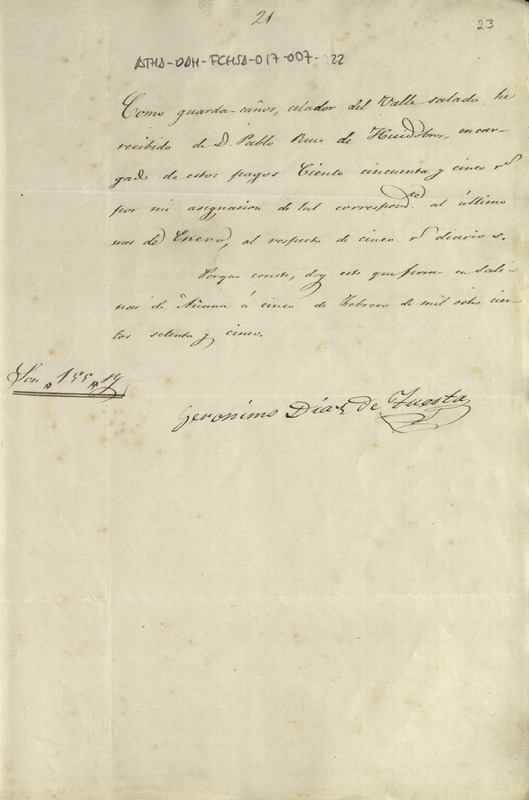 21
23
ATHA-DAH-FCHSA-017-007-022
Como guarda-caños, celador del Valle salado he
recibido de D. Pablo Ruiz de Huidobro, encar-
gado de estos pagos Ciento cincuenta y cinco rs
por mi asignacion de tal correspond.te al último
mes de Enero, al respecto de cinco rs diarios.
Porque conste, doy este que firmo en Sali-
nas de Añana á cinco de Febrero de mil ocho cien-
tos setenta y cinco.
Son "155" rs
Geronimo Diaz de Tuesta